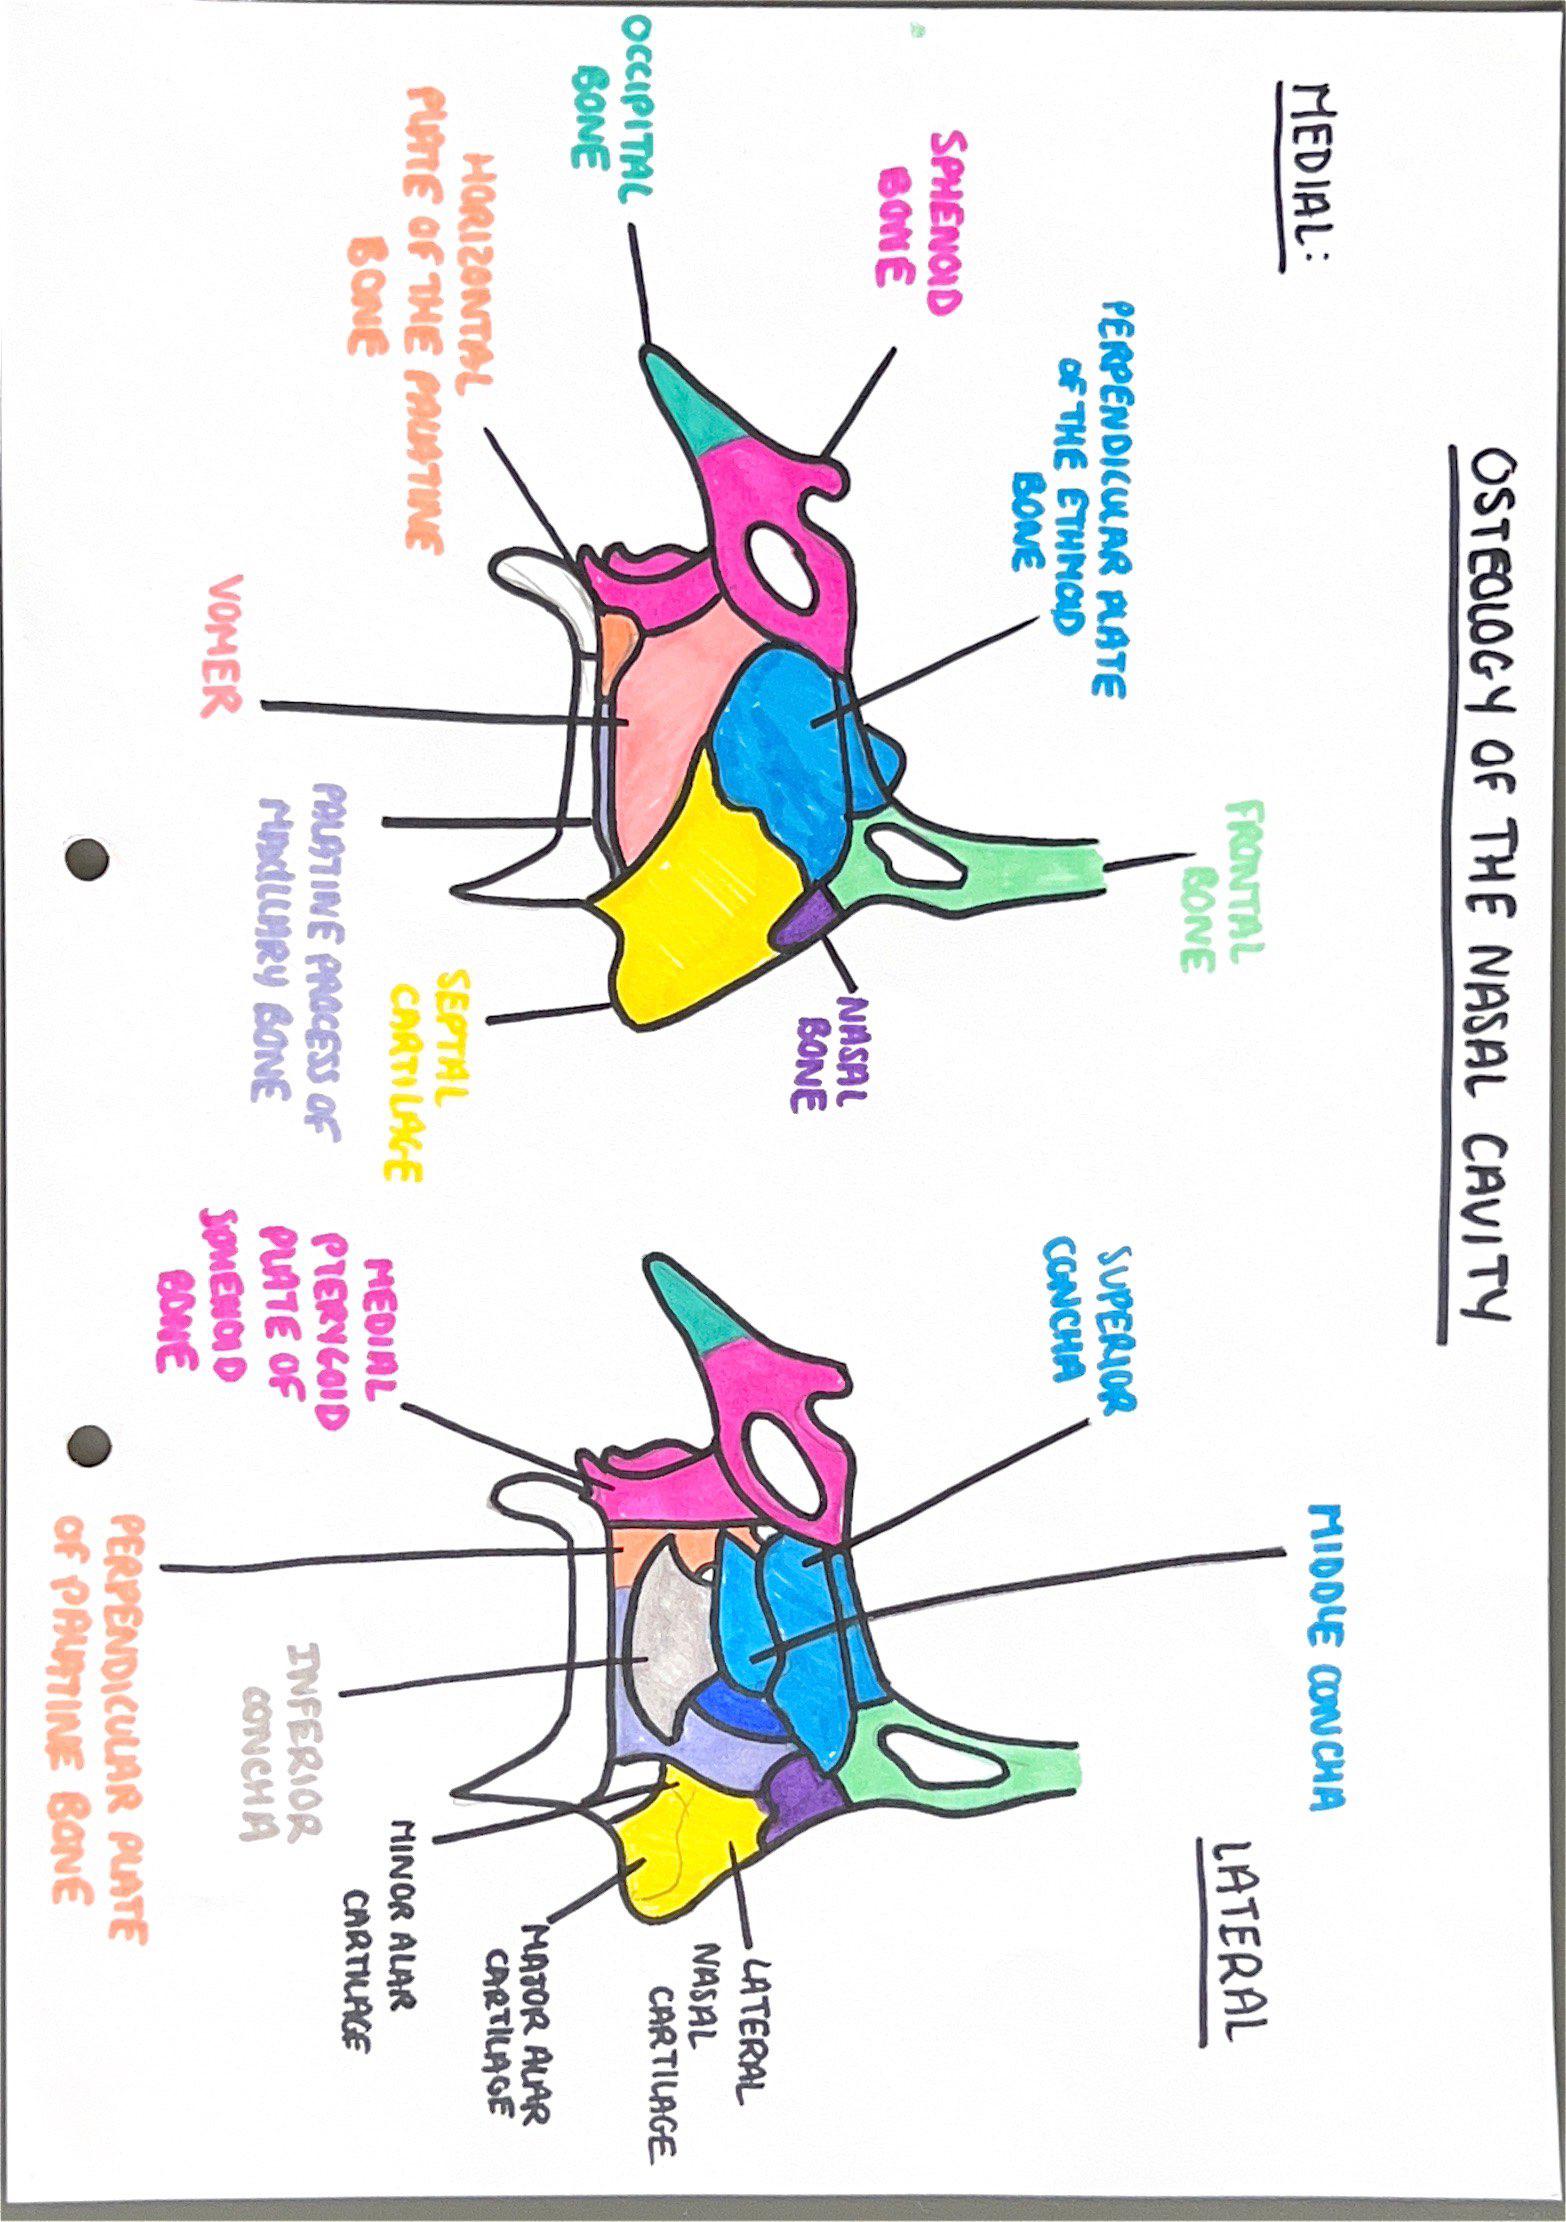 OSTEOLOGY OF THE NASAL CAVITY
MEDIAL:
FRONTAL
BONE
PERPENDICULAR PLATE
OF THE ETHMOID
BONE
SPHENOID
BONE
NASAL
BONE
OCCIPITAL
BONE
HORIZONTAL
PLATE OF THE PALATINE
BONE
SEPTAL
CARTILAGE
PALATINE PROCESS OF
MAXILLARY BONE
VOMER
LATERAL
MIDDLE CONCHA
SUPERIOR
CONCHA
LATERAL
NASAL
CARTILAGE
MAJOR ALAR
CARTILAGE
MINOR ALAR
CARTILAGE
INFERIOR
CONCHA
MEDIAL
PTERYGOID
PLATE OF
SPHENOID
BONE
PERPENDICULAR PLATE
OF PALATINE BONE